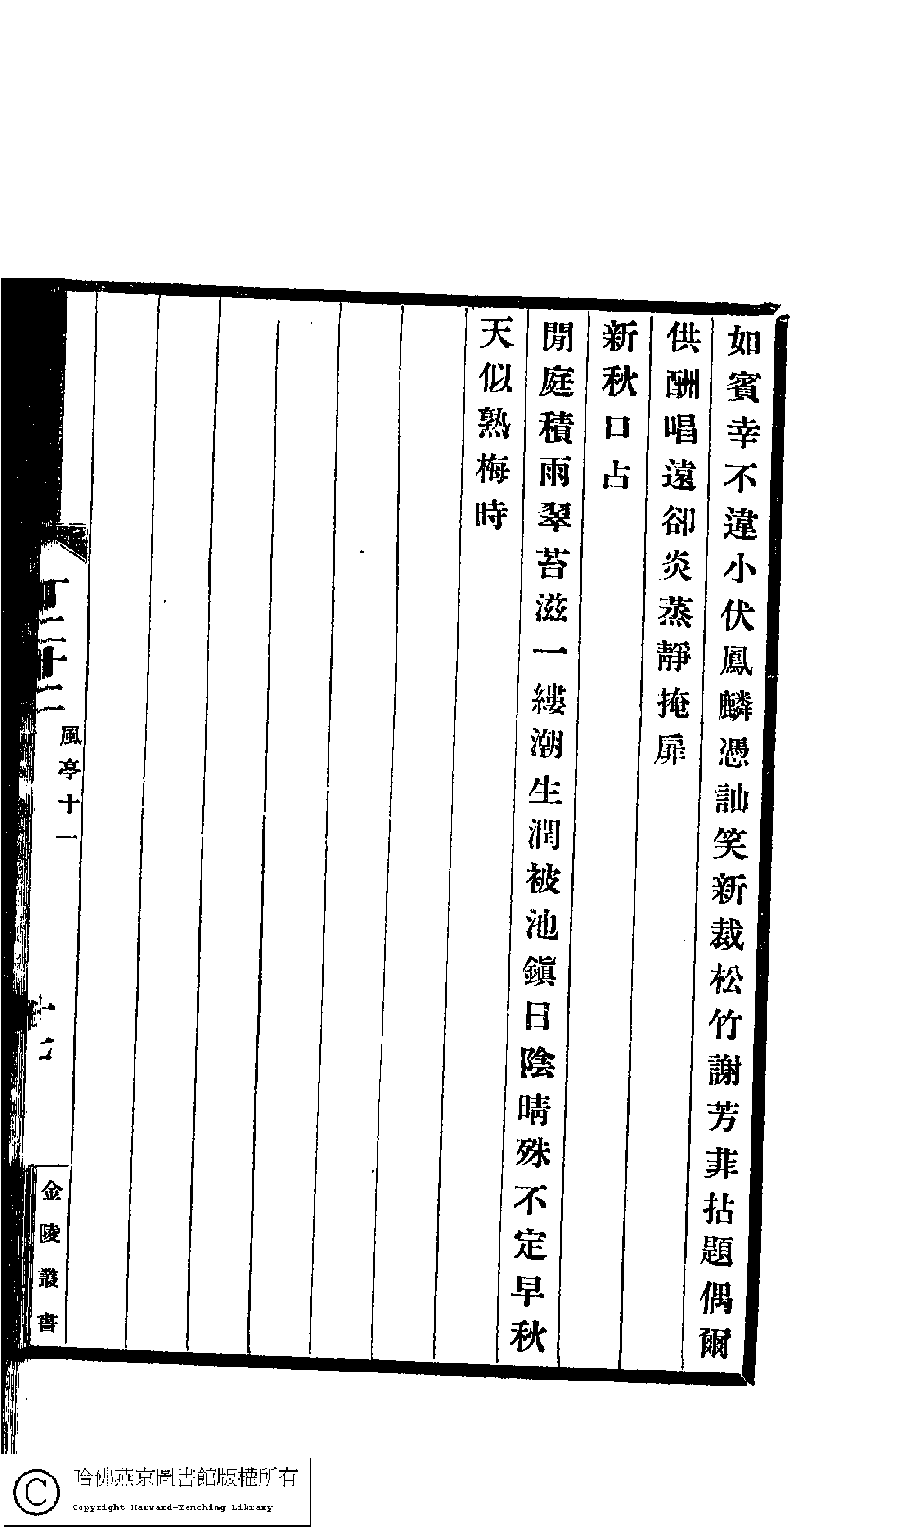 如賓幸不違小伏鳳麟憑訕笑新裁松竹謝芳菲拈題偶爾
供酬唱遠卻炎蒸靜掩扉
新秋口占
閒庭積雨翠苔滋一縷潮生潤被池鎭日陰晴殊不定早秋
天似熟梅時
風亭十一
金陵叢書
哈佛燕京圖書館版權所有
Copyright Harvard-Yenching Library